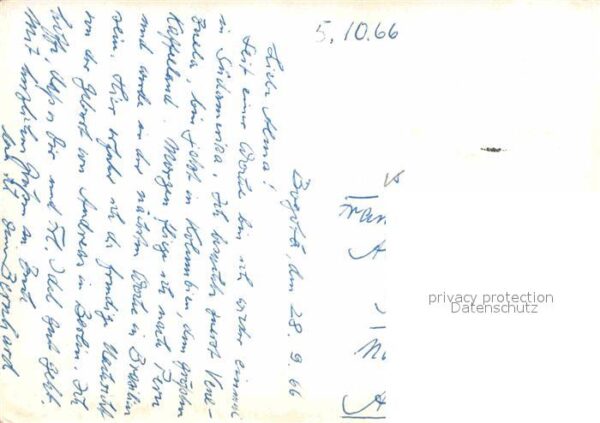 5.10.66
Bogotá, den 28.9.66
Liebe Alma!
Seit einer Woche bin ich wieder einmal
in Südamerika. Ich besuchte zuerst Vene-
zuela, bin jetzt in Kolumbien, dem großen
Kaffeeland. Morgen fliege ich nach Peru
und werde in der nächsten Woche in Brasilien
sein. Hier erfuhr ich die freudige Nachricht
von der Geburt von Andreas in Berlin. Ich
hoffe, daß es Dir und Frl. Idel gut geht.
Mit herzlichen Grüßen an Euch
bin ich Dein Bernhard
privacy protection
Datenschutz